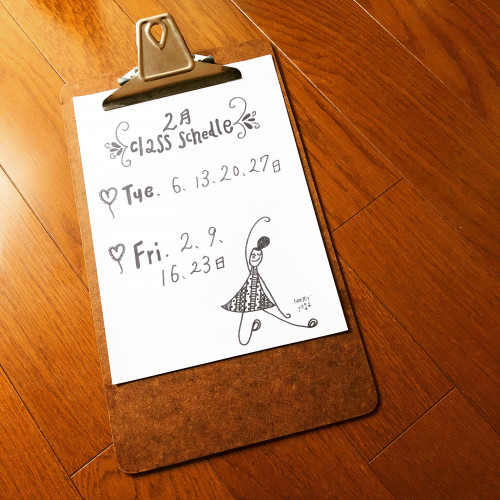 2月
class schedle
Tye. 6. 13. 20. 27日
Fri. 2. 9.
16. 23日